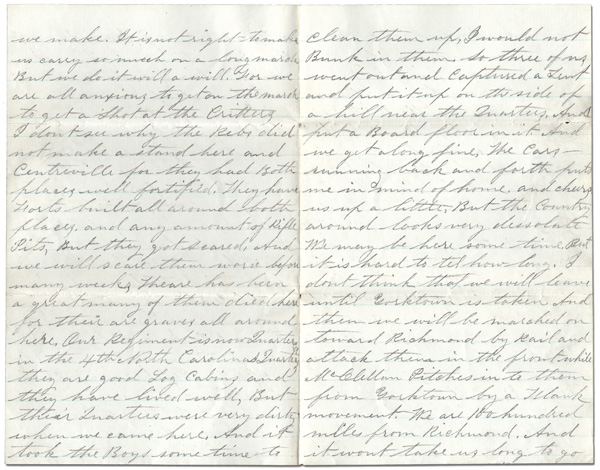 we make. It is not right - to make
us carry so much on a long march
But we do it will a will. For we
are all anxious to get on the march
to get a shot at the Critters
I dont see why the Rebs did
not make a stand here and
Centreville for they had Both
places well fortified. They have
Forts built all around both
places. and any amount of Rifle
Pits, But they got scared. and
we will scare them worse before
many weeks, Theare has been
a great many of them died here
for their are graves all around
here, Our Regiment is now Quartered
in the 4th North Carolinas Quarters
they are good Log Cabins and
they have lived well, But
their Quarters were very dirty
when we came here. And it
took the Boys some time to
clean them up, I would not
Bunk in them. so three of us
went out and Captured a Tent
and put it up on the side of
a hill near the Quarters, And
put a Board floor in it. And
we get along fine, The Cars -
running back and forth puts
me in mind of home. and cheers
us up a little, But the Country
around looks very dissolate
We may be here some time. But
it is hard to tell how long. I
dont think that we will leave
until Yorktown is taken. And
then we will be marched on
toward Richmond by Rail and
attack them in the front while
McClellan Pitches in to them
from Yorktown by a Flank
movement. We are 100 hundred
miles from Richmond. And
it wont take us long to go